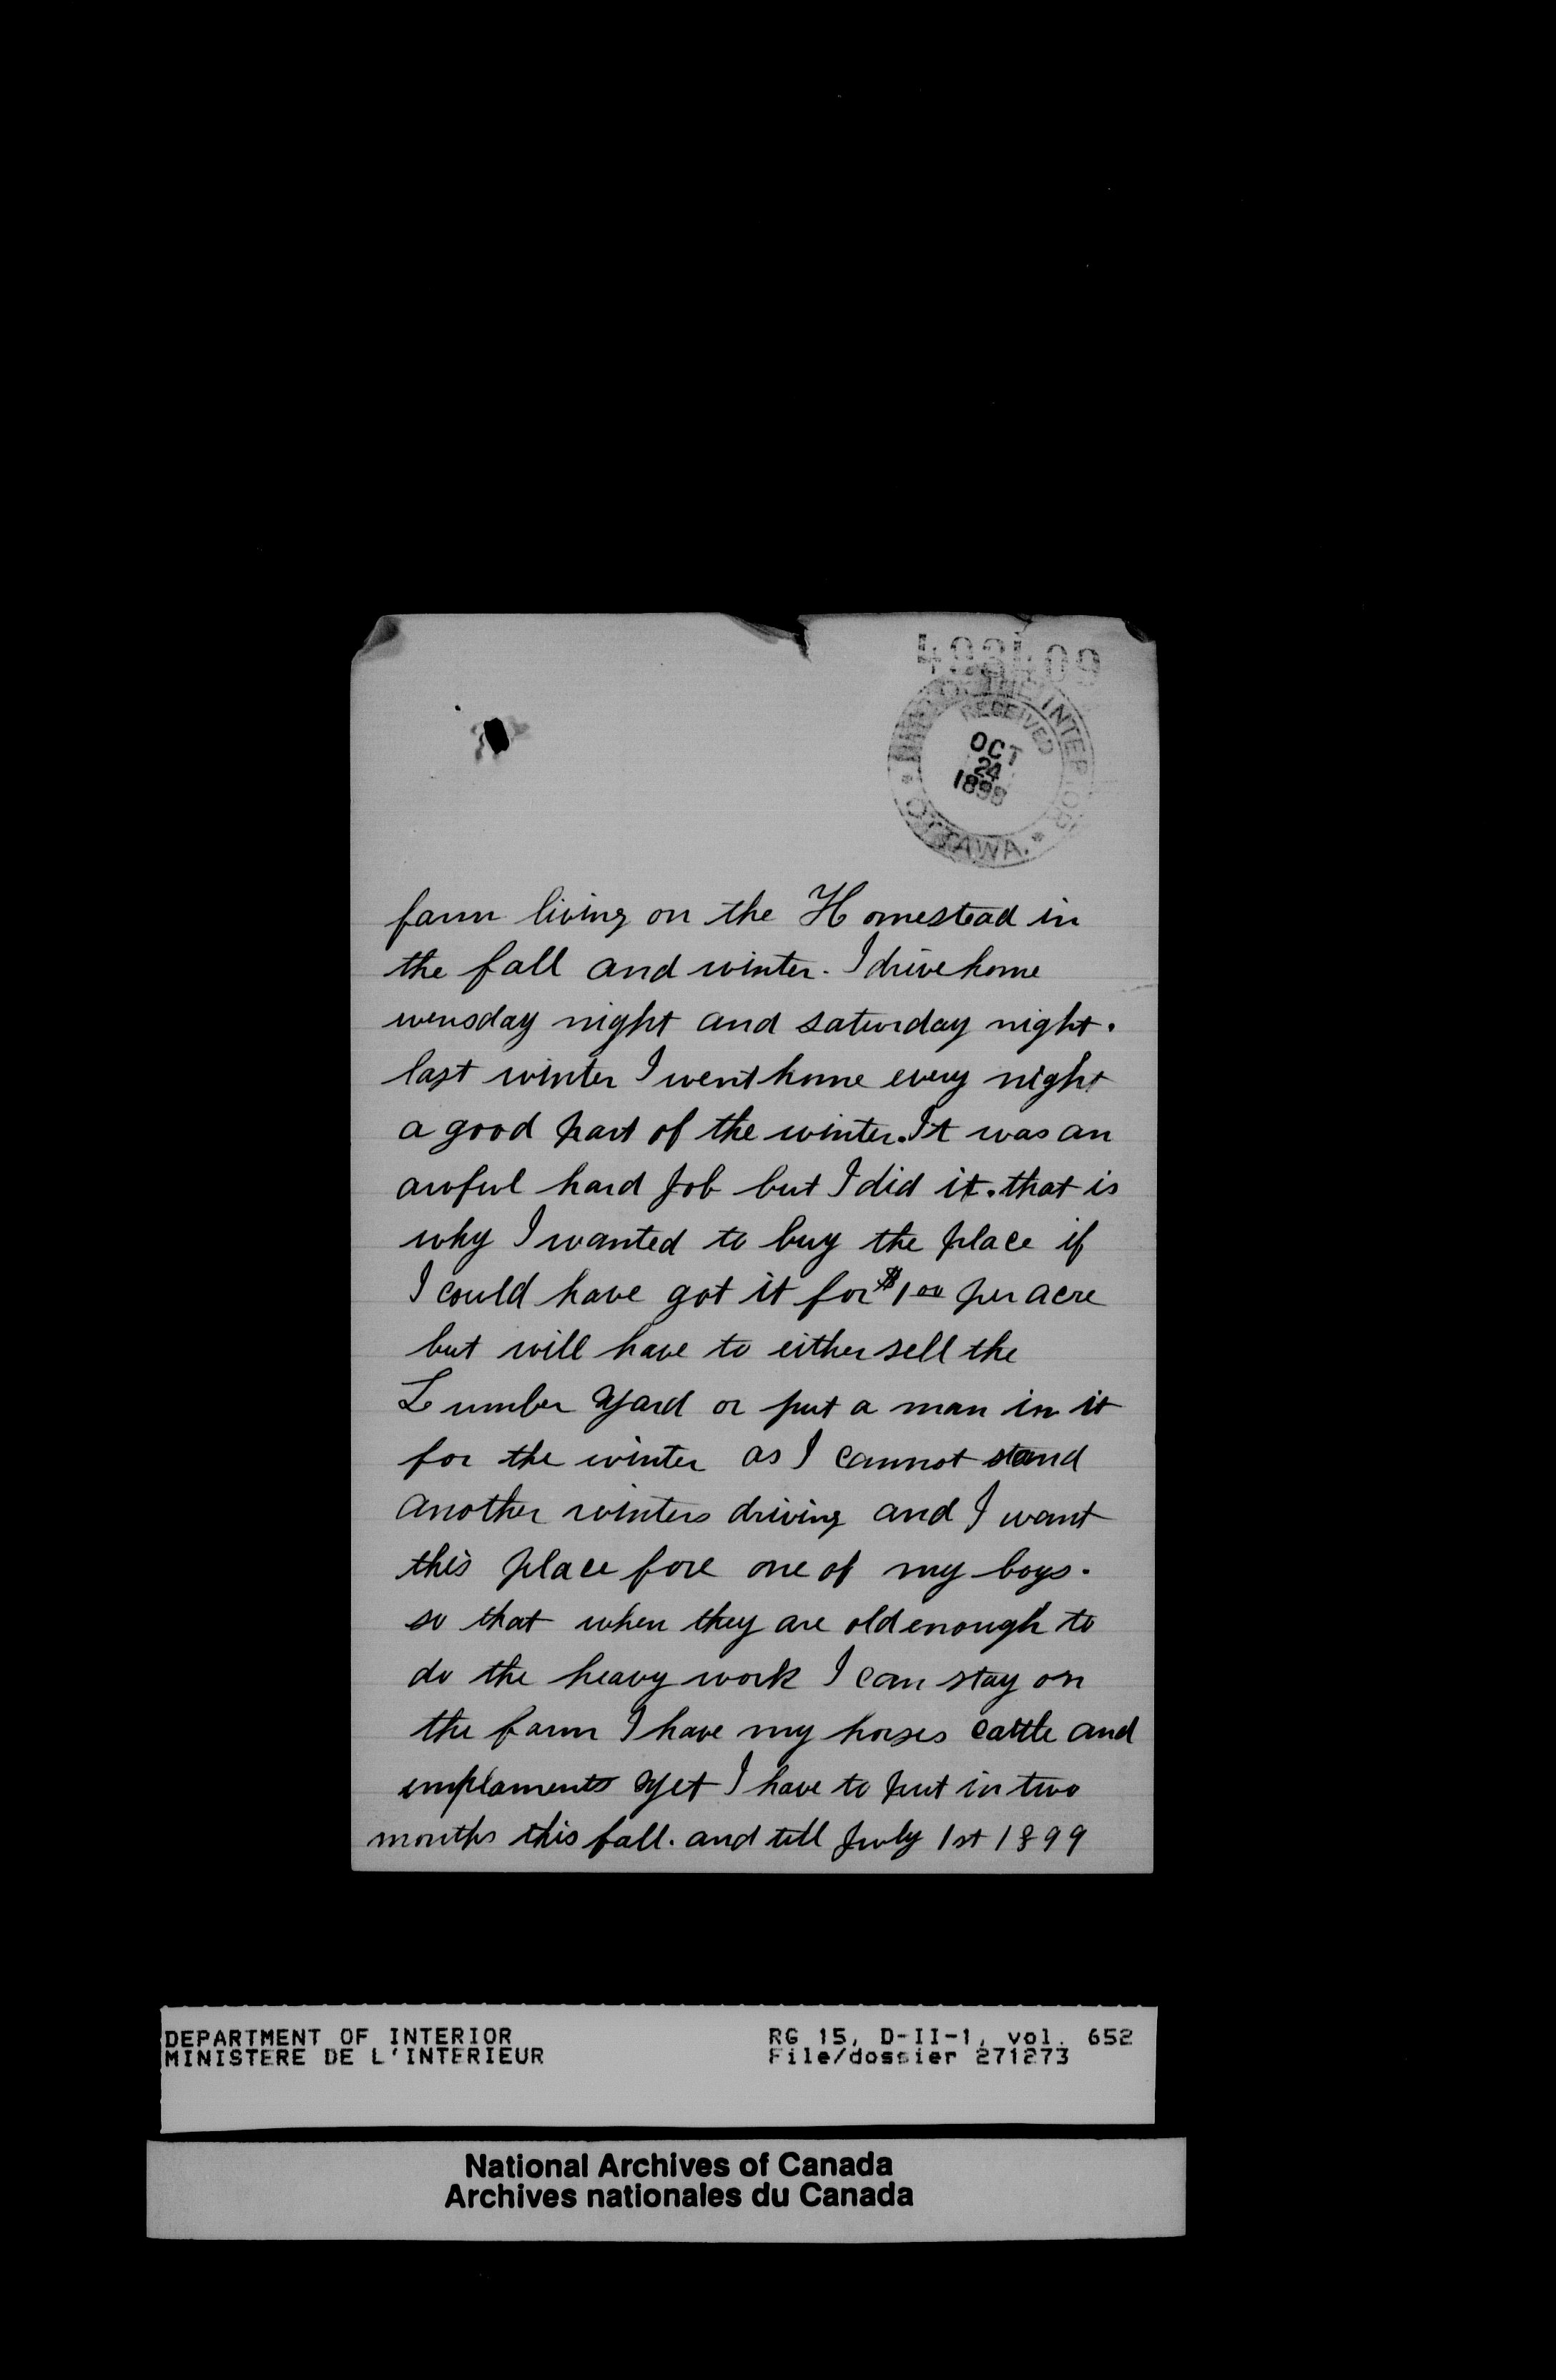 493409
DEPT. OF THE INTERIOR
RECEIVED
OCT
24
1898
OTTAWA.
farm living on the Homestead in
the fall and winter. I drive home
wensday night and saturday night.
last winter I went home every night
a good part of the winter. It was an
awful hard job but I did it. that is
why I wanted to buy the place if
I could have got it for $1 00 per acre
but will have to either sell the
Lumber Yard or put a man in it
for the winter as I cannot stand
another winters driving and I want
this place fore one of my boys.
so that when they are old enough to
do the heavy work I can stay on
the farm I have my horses cattle and
implaments yet I have to put in two
months this fall. and till July 1st 1899
DEPARTMENT OF INTERIOR RG 15, D-II-1, vol. 652
MINISTERE DE L'INTERIEUR File/dossier 271273
National Archives of Canada
Archives nationales du Canada